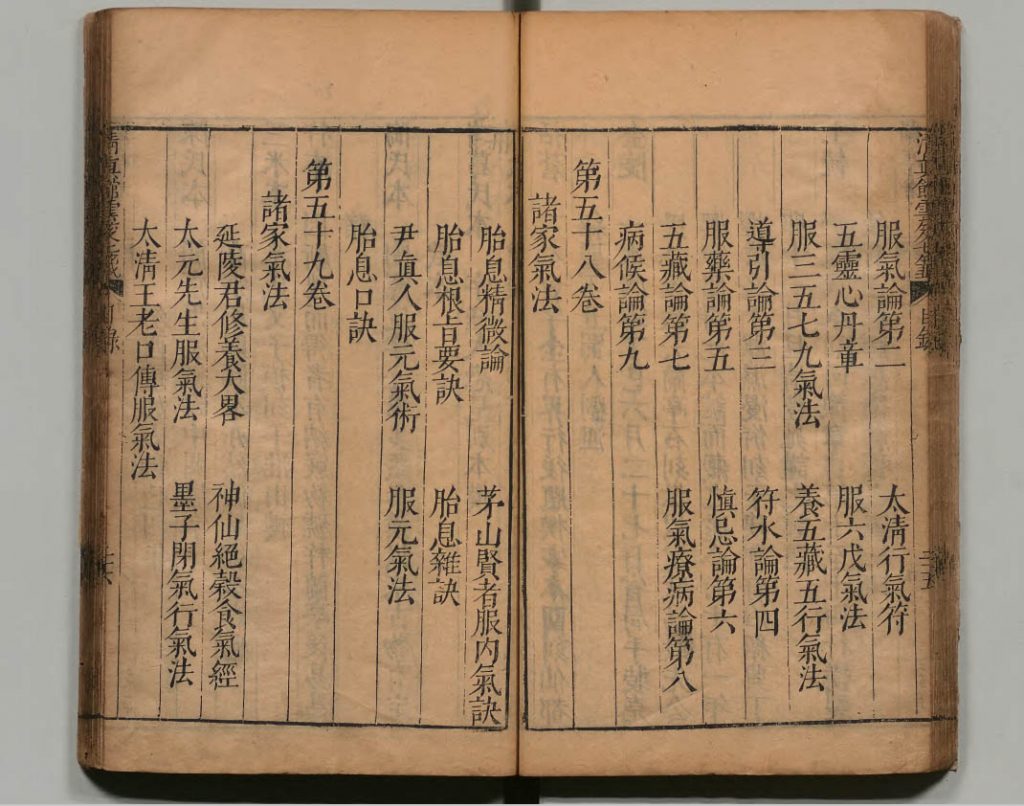 服氣論第二　太淸行氣符
五靈心丹章　服六戊氣法
服三五七九氣法　養五藏五行氣法
導引論第三　符水論第四
服藥論第五　愼忌論第六
五藏論第七　服氣療病論第八
病候論第九
第五十八卷
諸家氣法
胎息精微論　茅山賢者服內氣訣
胎息根旨要訣　胎息雜訣
尹眞人服元氣術　服元氣法
胎息口訣
第五十九卷
諸家氣法
延陵君修養大畧　神仙絕穀食氣經
太元先生服氣法　墨子閉氣行氣法
太淸王老口傳服氣法